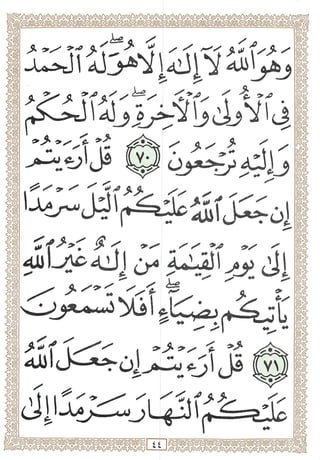 وَهُوَ ٱللَّهُ لَآ إِلَٰهَ إِلَّا هُوَۖ لَهُ ٱلْحَمْدُ
فِى ٱلْأُولَىٰ وَٱلْأَخِرَةِۖ وَلَهُ ٱلْحُكْمُ
وَإِلَيْهِ تُرْجَعُونَ ٧٠ قُلْ أَرَءَيْتُمْ
إِن جَعَلَ ٱللَّهُ عَلَيْكُمُ ٱلَّيْلَ سَرْمَدًا
إِلَىٰ يَوْمِ ٱلْقِيَٰمَةِ مَنْ إِلَٰهٌ غَيْرُ ٱللَّهِ
يَأْتِيكُم بِضِيَآءٍۖ أَفَلَا تَسْمَعُونَ
٧١ قُلْ أَرَءَيْتُمْ إِن جَعَلَ ٱللَّهُ
عَلَيْكُمُ ٱلنَّهَارَ سَرْمَدًا إِلَىٰ
٤٤